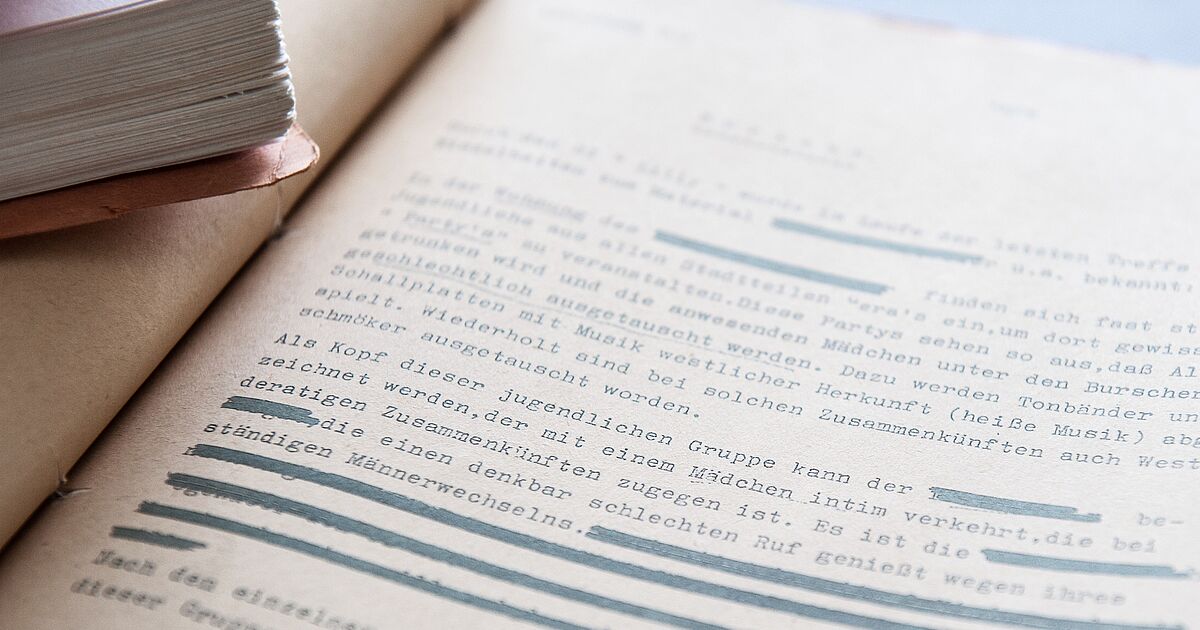 wurde im Laufe der letzten Treffs
Einzelheiten zum Material u.a. bekannt:
In der Wohnung des finden sich fast st
Jugendliche aus allen Stadtteilen "era's ein,um dort gewis
" Party's" zu veranstalten.Diese Partys sehen so aus,daß Al
getrunken wird und die anwesenden Mädchen unter den Burschen
geschlechtlich ausgetauscht werden. Dazu werden Tonbänder un
Schallplatten mit Musik westlicher Herkunft (heiße Musik) ab
spielt. Wiederholt sind bei solchen Zusammenkünften auch West
schmöker ausgetauscht worden.
Als Kopf dieser jugendlichen Gruppe kann der be-
zeichnet werden,der mit einem Mädchen intim verkehrt,die bei
deratigen Zusammenkünften zugegen ist. Es ist die
die einen denkbar schlechten Ruf genießt wegen ihres
ständigen Männerwechselns.
Nach den einzelnen
dieser Grupp